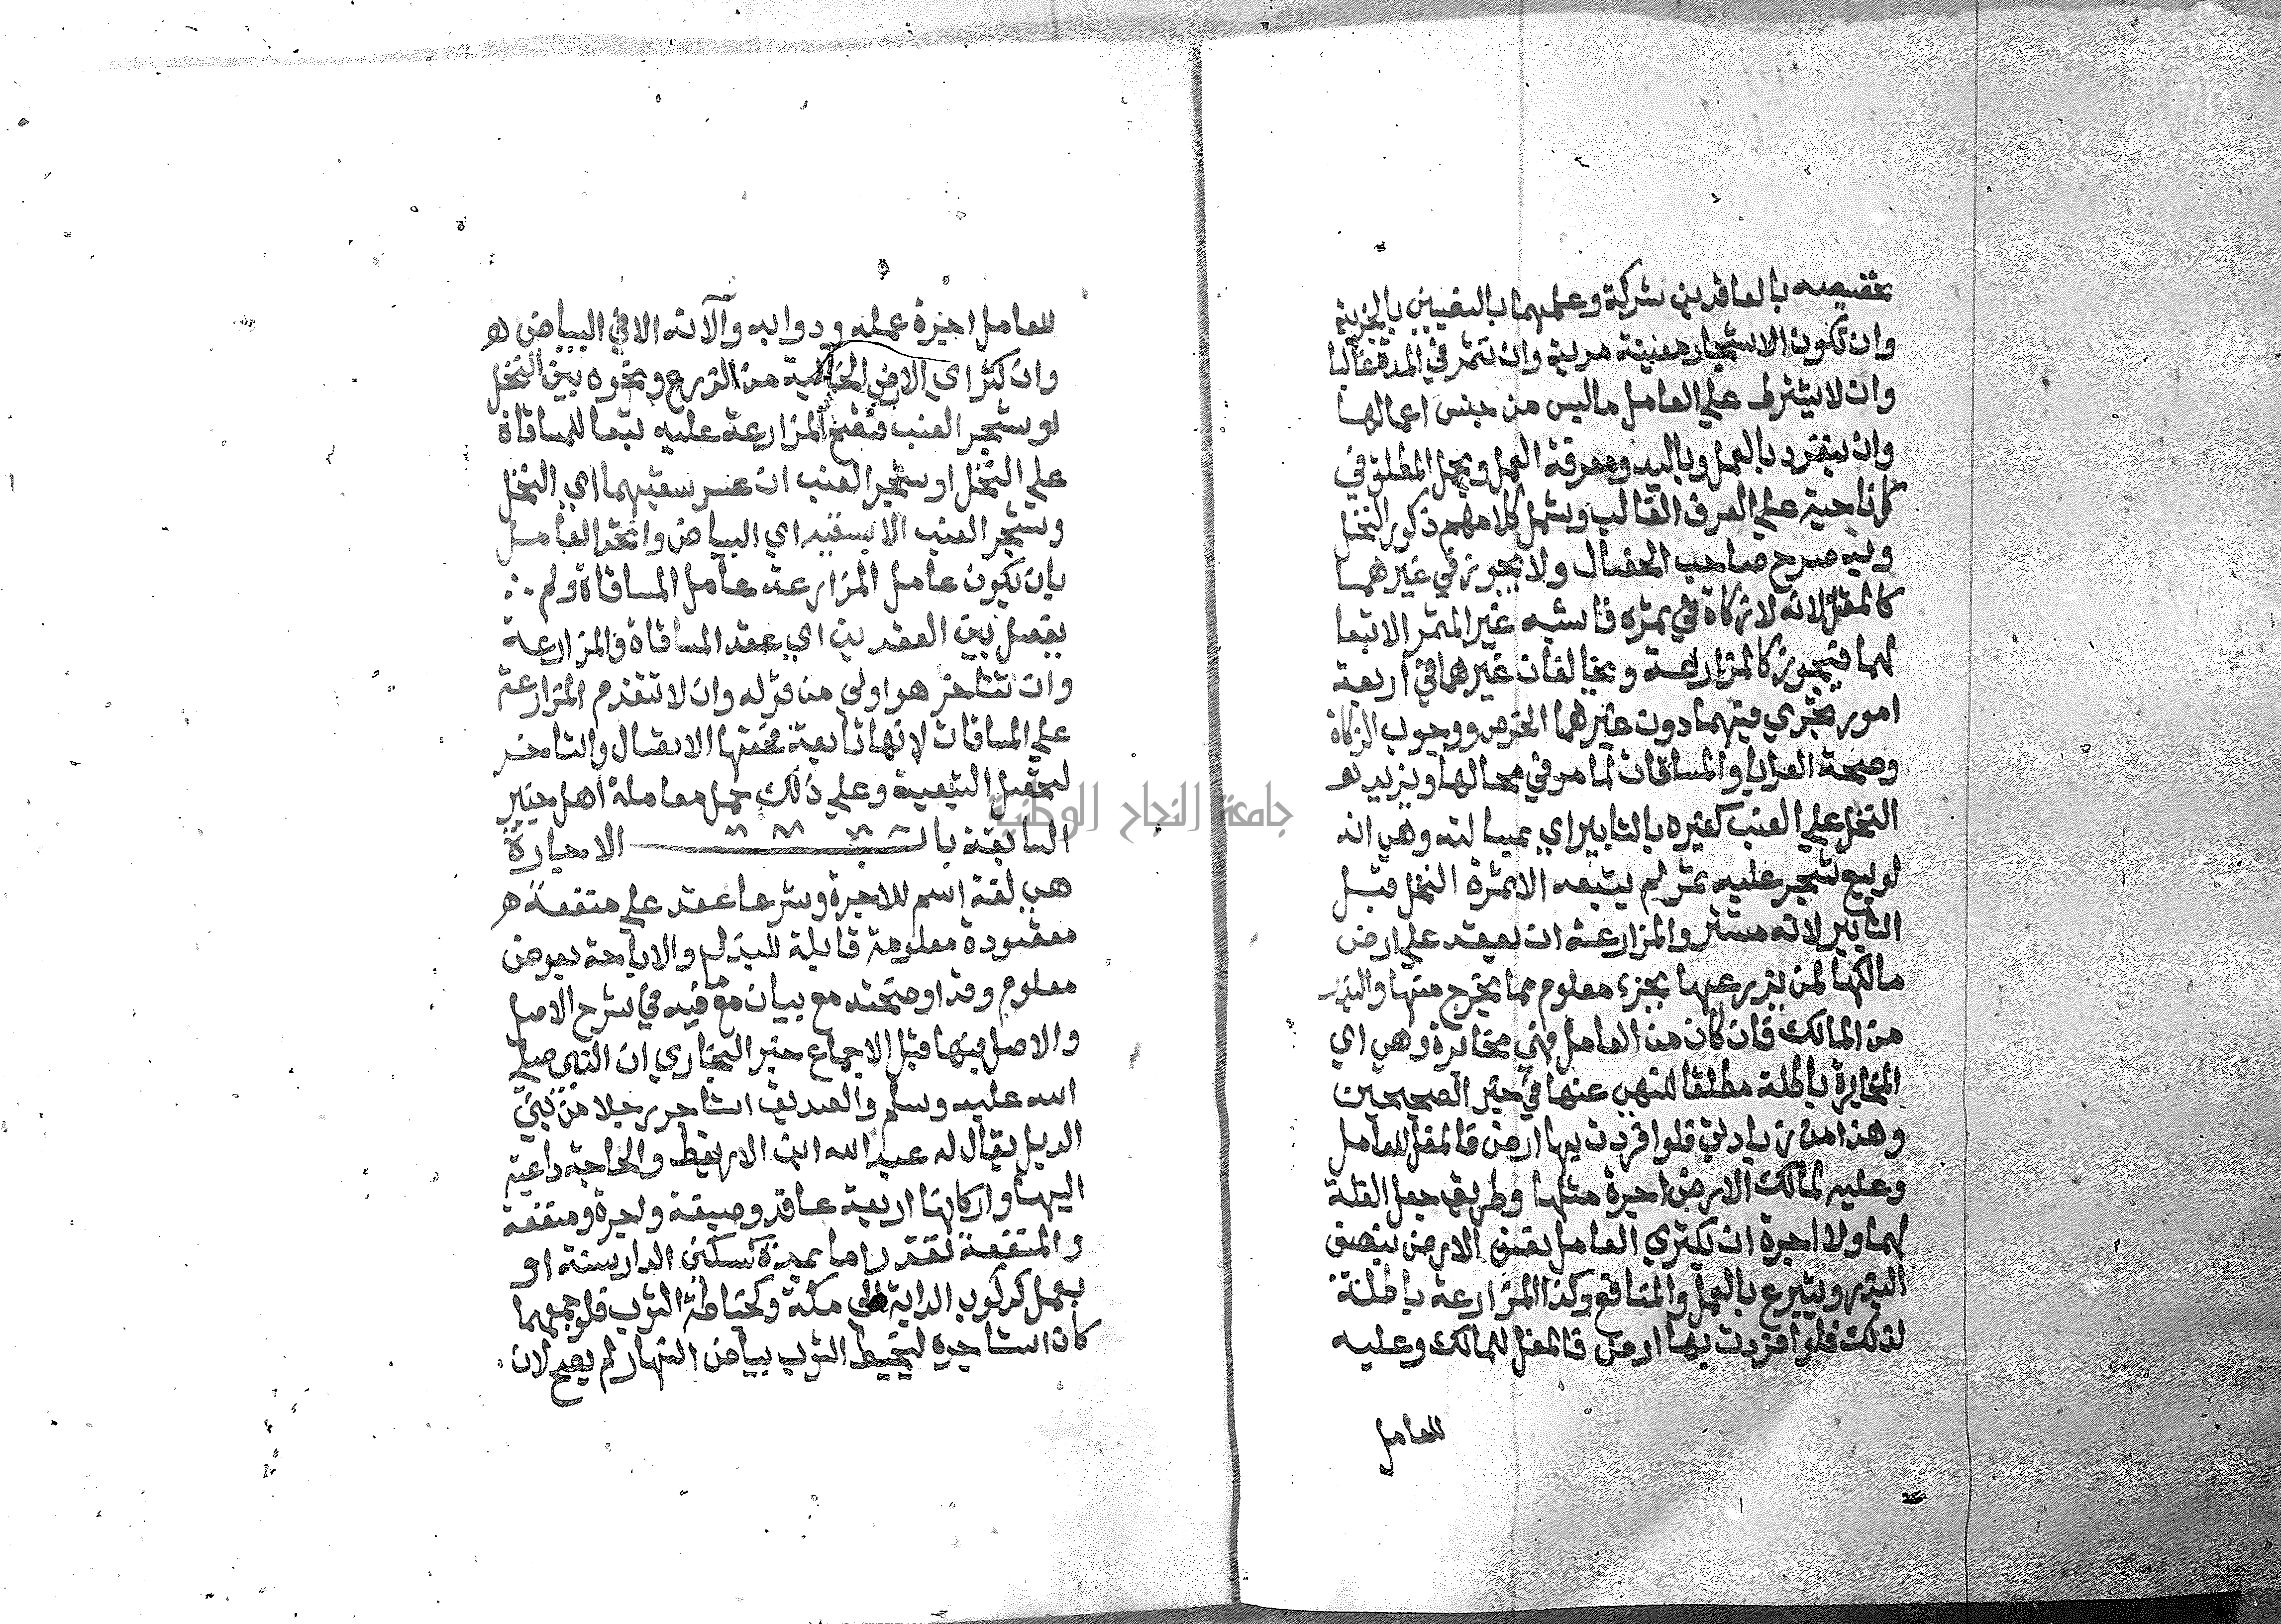 تخصيصه بالعاقدين شركة وعلمهما بالنصيبين بالجزئية
وان تكون الاشجار معينة مريية وان تثمر في المدة غالبا
وان لا يشترط على العامل ما ليس من جنس اعمالها
وان ينفرد بالعمل وباليد ومعرفة العمل ويحمل المطلق في
كل ناحية على العرف الغالب وشمل كلامهم ذكور النخل
وبه صرح صاحب الخصال ولا يجوز في غيرهما
كالمقل لانه لا زكاة في ثمره فاشبه غير المثمر الا تبعا
لهما فيجوز كالمزارعة ويخالفان غيرهما في اربعة
امور تجري فيهما دون غيرهما الخرص ووجوب الزكاة
وصحة العرايا والمساقات لما مر في محالها ويزيد
النخل على العنب كغيره بالتابير اي بمسالته وهي انه
لو بيع شجر عليه ثمر لم يتبعه الا ثمرة النخل قبل
التابير لانه مستتر والمزارعة ان يعقد على ارض
مالكها لمن يزرعها بجزء معلوم مما يخرج منها والبذر
من المالك فان كان من العامل فهي مخابرة وهي اي
المخابرة باطلة مطلقا للنهي عنها في خبر الصحيحين
وهذا من زيادتي فلو افردت بها ارض فالمغل للعامل
وعليه لمالك الارض اجرة مثلها وطريق جعل الغلة
لهما ولا اجرة ان يكتري العامل نصف الارض بنصف
البذر ويتبرع بالعمل والمنافع وكذا المزارعة باطلة
لذلك فلو افردت بها ارض فالمغل للمالك وعليه
للعامل
للعامل اجرة عمله ودوابه وآلاته الا في البياض
وان كثر اي الارض الخالية من الزرع ونحوه بين النخل
او شجر العنب فتصح المزارعة عليه تبعا للمساقاة
على النخل او شجر العنب ان عسر سقيهما اي النخل
وشجر العنب الا بسقيه اي البياض واتحد العامل
بان يكون عامل المزارعة عامل المساقاة ولم ∴
يفصل بين العقدين اي عقد المساقاة والمزارعة
وان تتاخر هو اولى من قوله وان لا تتقدم المزارعة
على المساقات لانها تابعة فحقها الاتصال والتاخر
لتحصل التبعية وعلى ذلك حمل معاملة اهل خيبر
السابقة باب الاجارة
هي لغة اسم للاجرة وشرعا عقد على منفعة
مقصودة معلومة قابلة للبذل والاباحة بعوض
معلوم وقد اوضحته مع بيان مع فيه في شرح الاصل
والاصل فيها قبل الاجماع خبر البخاري ان النبي صلى
الله عليه وسلم والصديق استاجر رجلا من بني
الديل يقال له عبد الله ابن الاريقط والحاجة داعية
اليها واركانها اربعة عاقد وصيغة واجرة ومنفعة
والمنفعة تقدر اما بمدة كسكنى الدار سنة او
بعمل كركوب الدابة الى مكة وكخياطة الثوب فلو جمعهما
كان استاجره ليخيط الثوب بياض النهار لم يصح لان
جامعة النجاح الوطنية